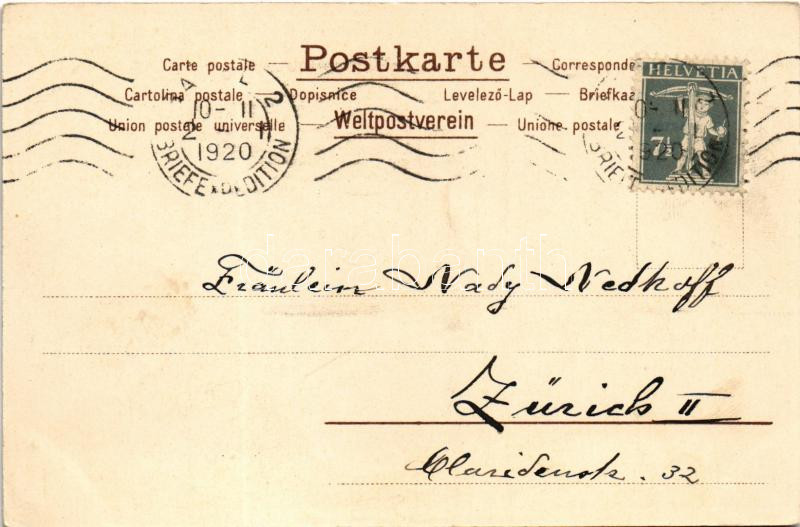 Carte postale — Postkarte — Corresponde
Cartolina postale — Dopisnice Levelező-Lap — Briefkaa
Union postale universelle — Weltpostverein — Unione postale
HELVETIA
7½
2
10-11
1920
BRIEFEXPEDITION
10-11
1920
darabanth
Fräulein Nady Nedhoff
Zürich II
Claridenstr. 32